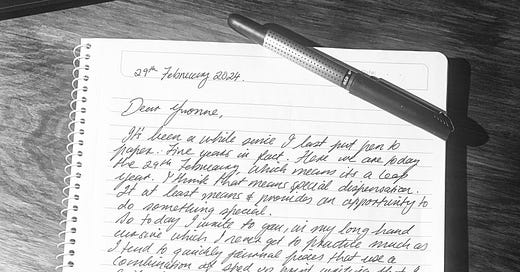 29th February 2024.
Dear Yvonne,
It's been a while since I last put pen to
paper. Five years in fact. Here we are today
the 29th February, which means its a leap
year. I think that means special dispensation.
It at least means & provides an opportunity to
do something special.
So today I write to you, in my long hand
cursive which I never get to practice much as
I tend to quickly journal pieces that use a
combination of sped up print writing that I